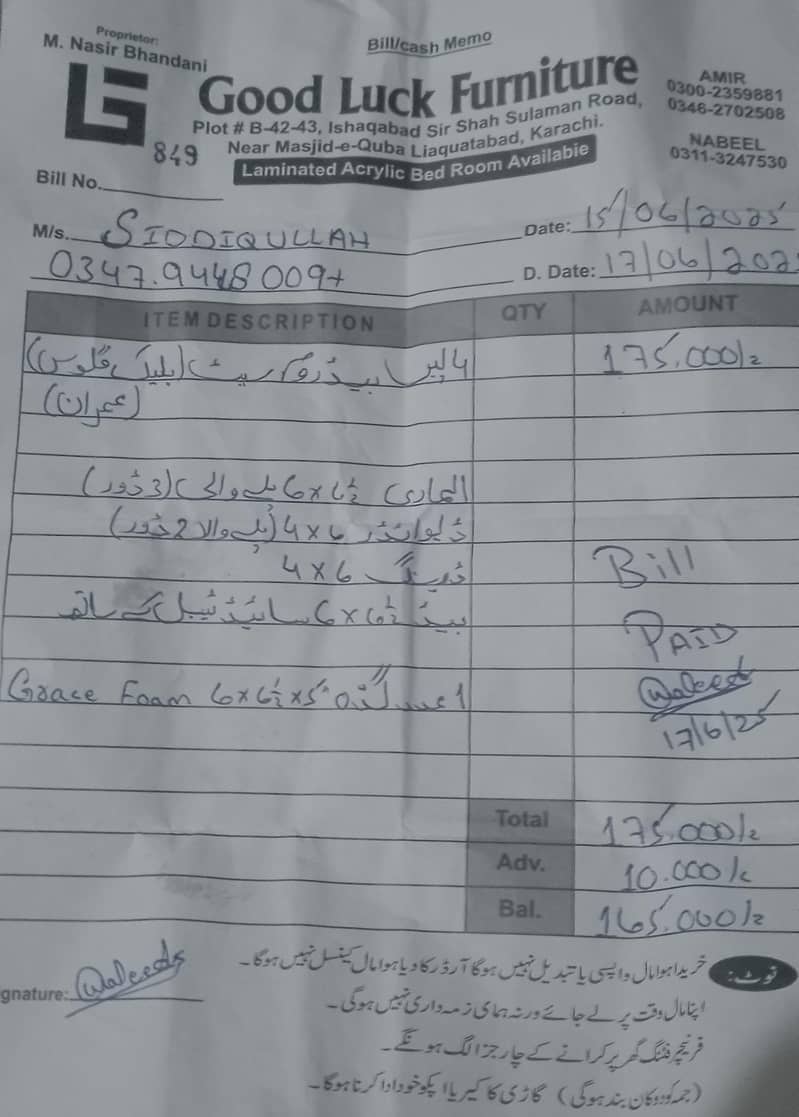 Proprietor:
M. Nasir Bhandani
Bill/cash Memo
Good Luck Furniture
Plot # B-42-43, Ishaqabad Sir Shah Sulaman Road,
Near Masjid-e-Quba Liaquatabad, Karachi.
Laminated Acrylic Bed Room Availabie
AMIR
0300-2359881
0346-2702508
NABEEL
0311-3247530
849
Bill No.
M/s. SIDDIQULLAH
0347.9448009+
Date: 15/06/2025
D. Date: 17/06/202
ITEM DESCRIPTION QTY AMOUNT
بیڈروم سیٹ (بلیک گلوس) 175,000/=
(عمران)
الماری 6x6½ پلے والی (3 ڈور)
ڈیوائڈر 4x6 (پلے والا 2 ڈور)
ڈریسنگ 4x6
Bill
بیڈ 6x6½ سائیڈ ٹیبل کے ساتھ
PAID
Waleed
1 عدد گدّہ Grace Foam 6x6½x5"
17/6/25
Total 175,000/=
Adv. 10.000/=
Bal. 165,000/=
gnature: Waleed
نوٹ: خریدا ہوا مال واپسی یا تبدیل نہیں ہوگا آرڈر کا دیا ہوا مال کینسل نہیں ہوگا۔
اپنا مال وقت پر لے جائے ورنہ ہمای زمہ داری نہیں ہوگی۔
فرنیچر فٹنگ گھر پر کرانے کے چارجز الگ ہونگے۔
(جمعہ کو دوکان بند ہوگی) گاڑی کا کیریا اپکو خود ادا کرنا ہوگا۔